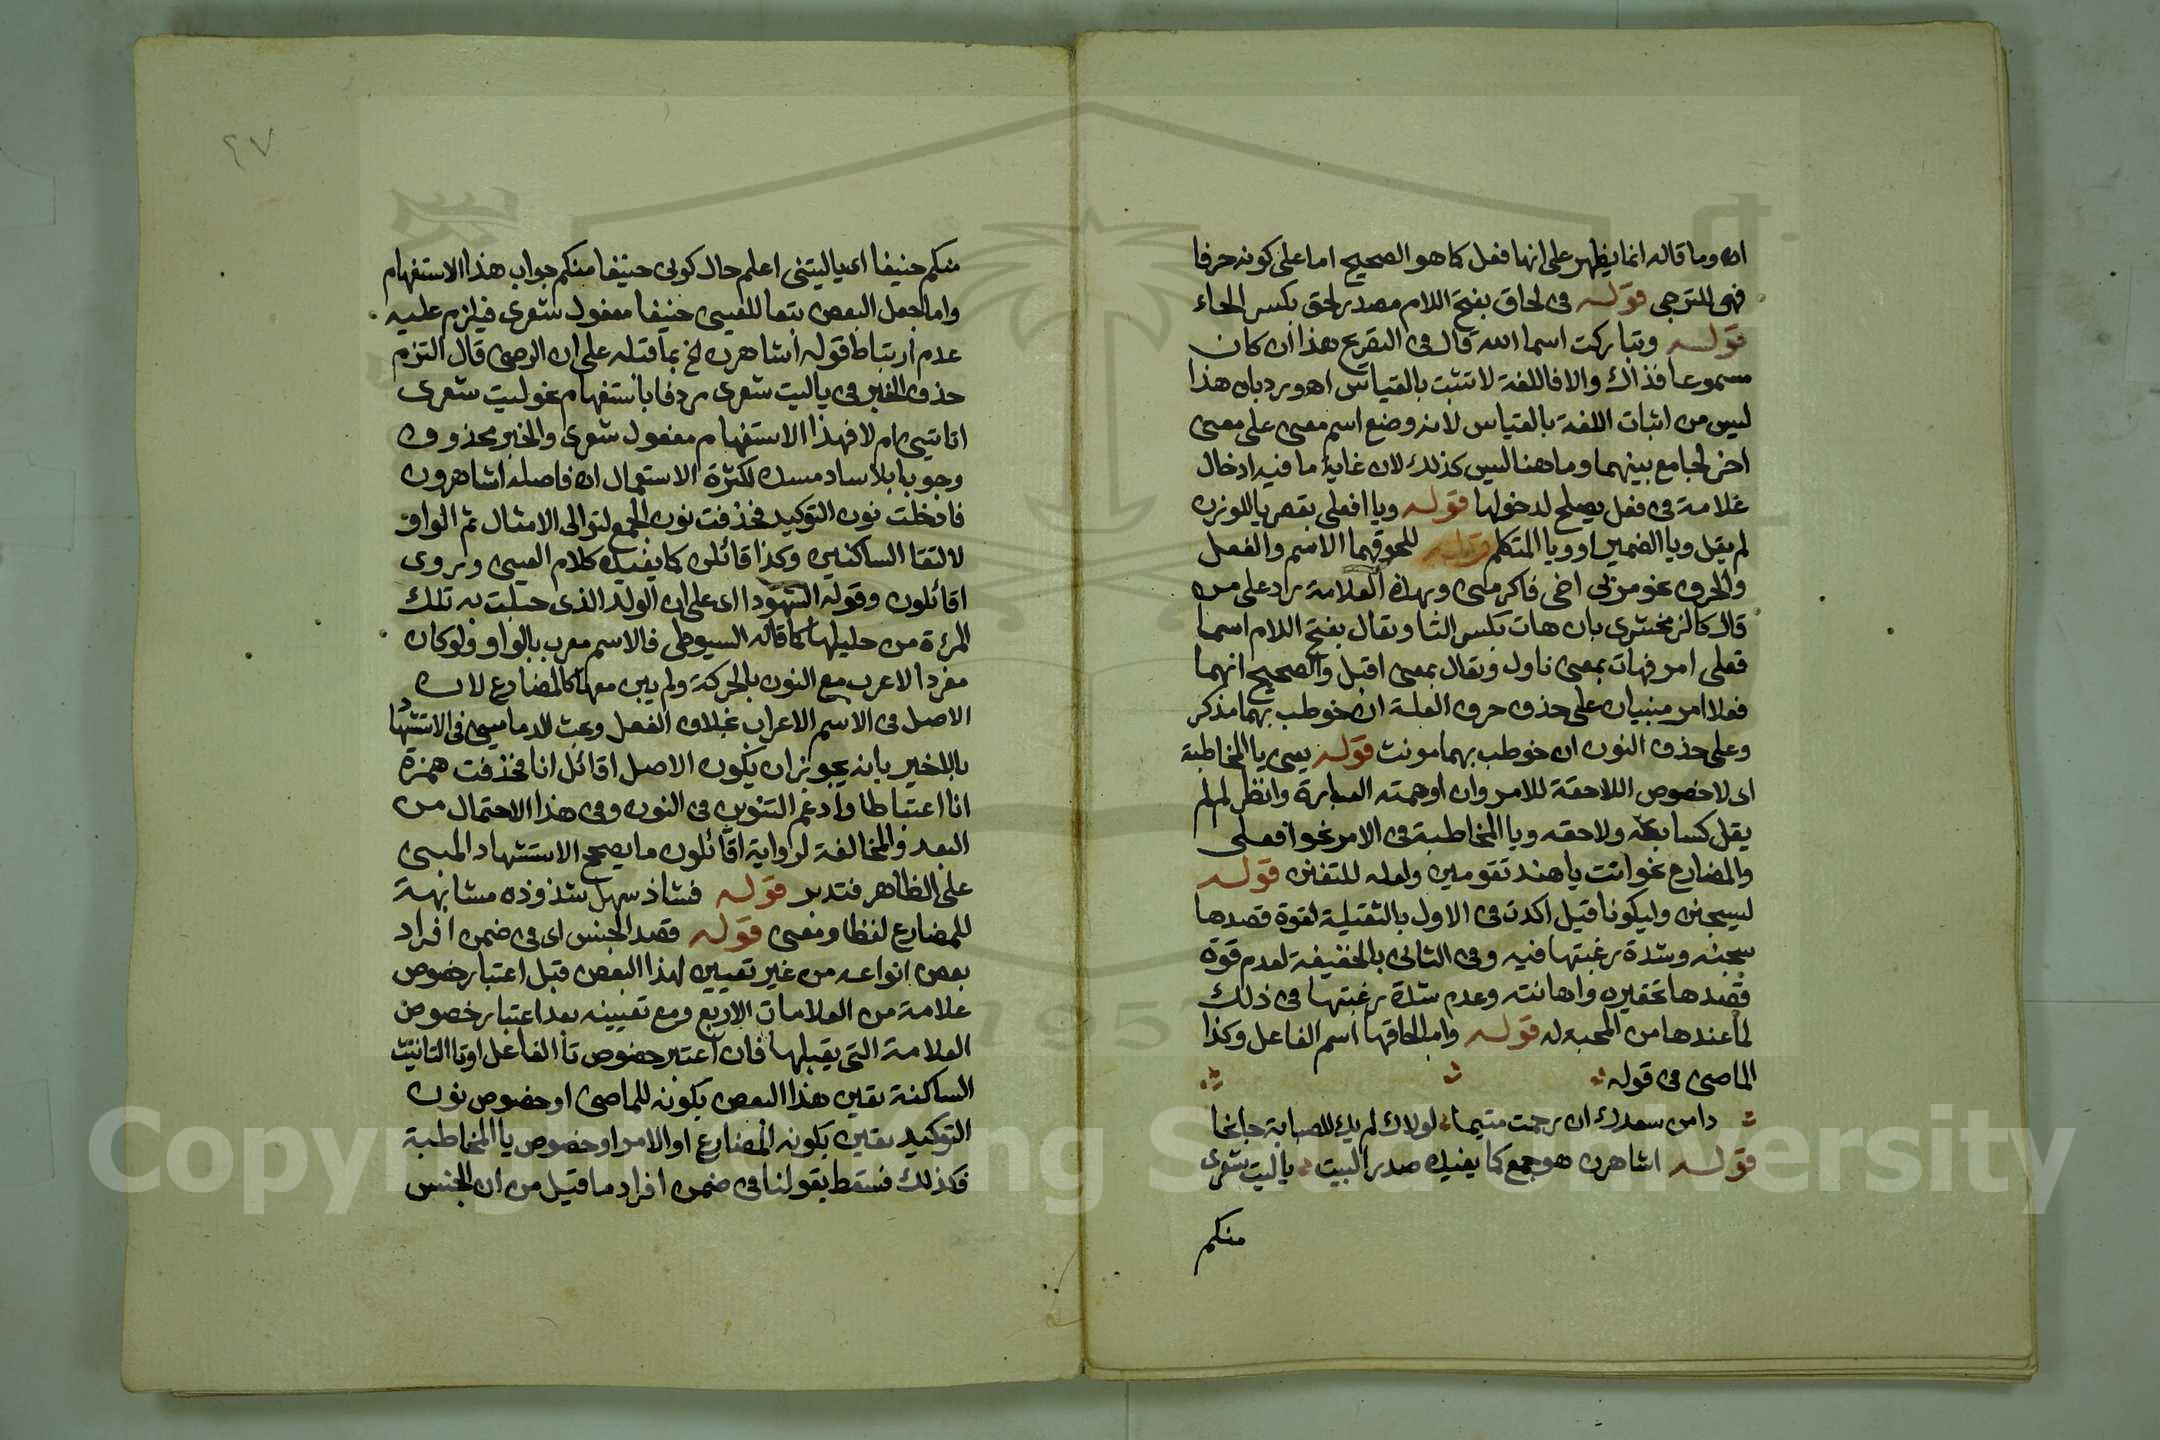 اه وما قاله انما يظهر على انها فعل كما هو الصحيح اما على كونه حرفا
فهى للترجى قوله فى لحاق بفتح اللام مصدر لحق بكسر الحاء
قوله وتباركت اسما الله قال فى التصريح هذا ان كان
مسموعا فذاك والا فاللغة لا تثبت بالقياس اه ويرد بان هذا
ليس من اثبات اللغة بالقياس لانه وضع اسم معنى على معنى
اخر لجامع بينهما وما هنا ليس كذلك لان غاية ما فيه ادخال
علامة فى فعل يصلح لدخولها قوله ويا افعلى بقصر يا للوزن
لم يقل ويا الضمير او ويا المتكلم قوله للحوقهما الاسم والفعل
والحرف نحو مر بى اخى فاكرمنى وبهذه العلامة يرد على من
قال كالزمخشرى بان هات بكسر التا وتعال بفتح اللام اسما
فعلى امر فهات بمعنى ناول وتعال بمعنى اقبل والصحيح انهما
فعلا امر مبنيان على حذف حرف العلة ان خوطب بهما مذكر
وعلى حذف النون ان خوطب بهما مونث قوله يعنى يا المخاطبة
اى لا خصوص اللاحقة للامر وان اوهمته العبارة وانظر لم لم
يقل كسابقه ولاحقه ويا المخاطبة فى الامر نحو افعلى
والمضارع نحو انت يا هند تقومين ولعله للتفنن قوله
ليسجنن وليكونا قيل اكدت فى الاول بالثقيلة لقوة قصدها
سجنه وشدة رغبتها فيه وفى الثانى بالخفيفة لعدم قوة
قصدها تحقيره واهانته وعدم شدة رغبتها فى ذلك
لما عندها من المحبة له قوله واما لحاقها اسم الفاعل وكذا
الماضى فى قوله
دامن سعدك ان رحمت متيما لولاك لم يك للصبابة جانحا
قوله اشاهرن هو جمع كما يفيده صدر البيت يا ليت شعرى
منكم
٢٧
منكم حنيفا اى يا ليتنى اعلم حال كونى حنيفا منكم جواب هذا الاستفهام
واما جعل البعض تبعا للعينى حنيفا مفعول شعرى فيلزم عليه
عدم ارتباط قوله أشاهرن الخ بما قبله على ان الرضى قال التزم
حذف الخبر فى يا ليت شعرى مردفا باستفهام نحو ليت شعرى
اتاتينى ام لا فهذا الاستفهام مفعول شعرى والخبر محذوف
وجوبا بلا ساد مسده لكثرة الاستعمال اه فاصله اشاهرون
فادخلت نون التوكيد فحذفت نون الجمع لتوالى الامثال ثم الواو
لالتقا الساكنين وكذا قائلن كما يفيده كلام العينى ويروى
اقائلون وقوله الشهودا اى على ان الولد الذى حبلت به تلك
المرءة من حليلها كما قاله السيوطى فالاسم معرب بالواو ولو كان
مفردا لاعرب مع النون بالحركة ولم يبن معها كالمضارع لان
الاصل فى الاسم الاعراب بخلاف الفعل وبحث الدمامينى فى الاستشهاد
بالاخير بانه يجوز ان يكون الاصل اقائل انا فحذفت همزة
انا اعتباطا وادغم التنوين فى النون وفى هذا الاحتمال من
البعد والمخالفة لرواية اقائلون ما يصحح الاستشهاد المبنى
على الظاهر فتدبر قوله فشاذ سهل شذوذه مشابهة
للمضارع لفظا ومعنى قوله قصد الجنس اى فى ضمن افراد
بعض انواعه من غير تعيين لهذا البعض قبل اعتبار خصوص
علامة من العلامات الاربع ومع تعيينه بعد اعتبار خصوص
العلامة التى يقبلها فان اعتبر خصوص تا الفاعل او تا التانيث
الساكنة تعين هذا البعض بكونه للماضى او خصوص نون
التوكيد تعين بكونه المضارع او الامر او خصوص يا المخاطبة
فكذلك فسقط بقولنا فى ضمن افراد ما قيل من ان الجنس
Copyright © King Saud University
1957